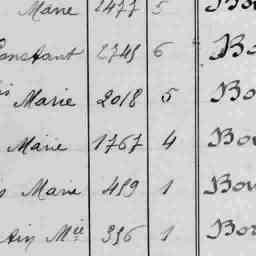 Marie 2477 5 Bo
Constant 2745 6 Bo
is Marie 2018 5 Bo
Marie 1767 4 Bou
s Marie 459 1 Bou
Mie 356 1 Bou